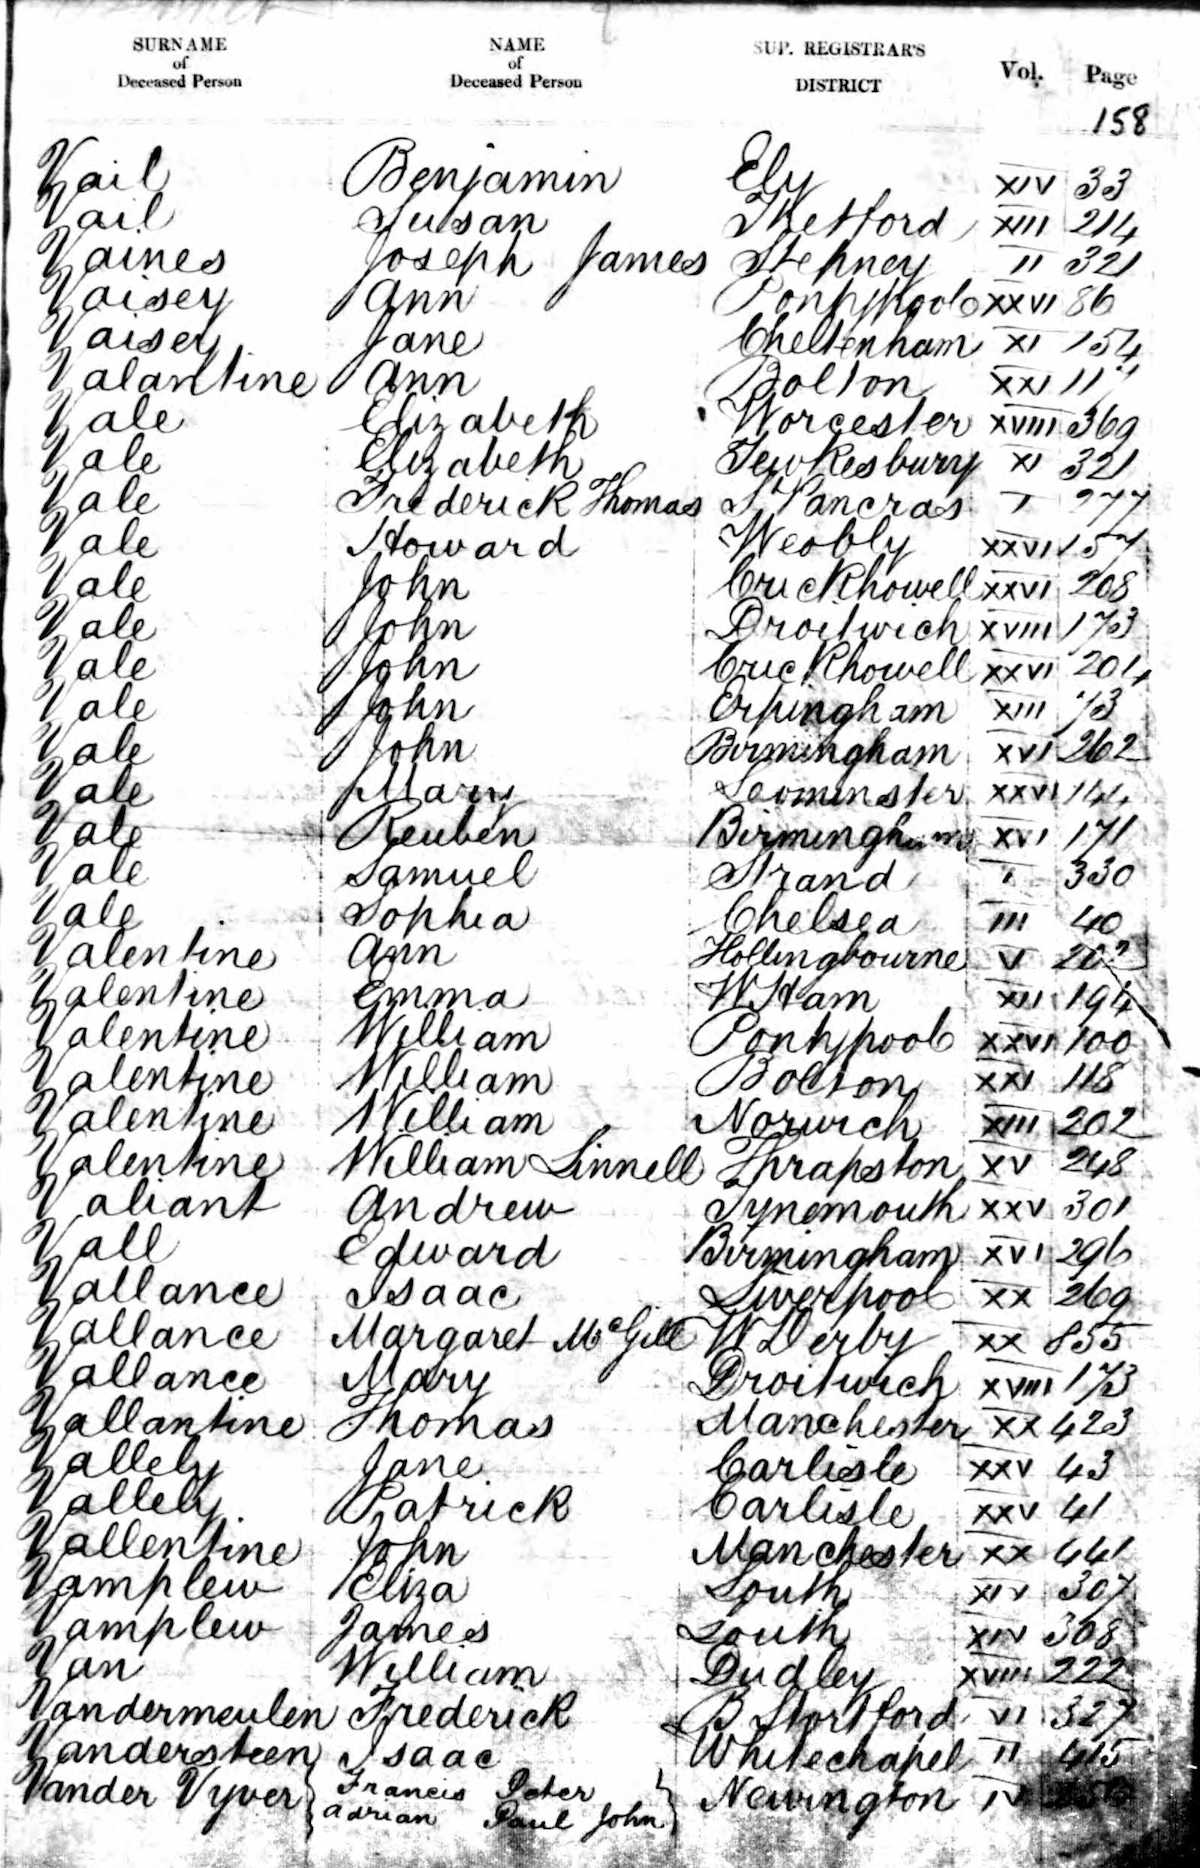 SURNAME of Deceased Person NAME of Deceased Person SUP. REGISTRAR'S DISTRICT Vol. Page
158
Vail Benjamin Ely XIV 33
Vail Susan Thetford XIII 214
Vaines Joseph James Stepney II 321
Vaisey Ann Pontypool XXVI 86
Vaisey Jane Cheltenham XI 154
Valantine Ann Bolton XXI
Vale Elizabeth Worcester XVIII 369
Vale Elizabeth Tewkesbury XI 321
Vale Frederick Thomas S Pancras I 277
Vale Howard Weobly XXVI 157
Vale John Crickhowell XXVI 208
Vale John Droitwich XVIII 173
Vale John Crickhowell XXVI 204
Vale John Erpingham XIII 73
Vale John Birmingham XVI 262
Vale Mary Leominster XXVI 144
Vale Reuben Birmingham XVI 171
Vale Samuel Strand I 330
Vale Sophia Chelsea III 40
Valentine Ann Hollingbourne V
Valentine Emma W Ham XII 194
Valentine William Pontypool XXVI 100
Valentine William Bolton XXI 118
Valentine William Norwich XIII 202
Valentine William Linnell Thrapston XV 248
Valiant Andrew Tynemouth XXV 301
Vall Edward Birmingham XVI 296
Vallance Isaac Liverpool XX 269
Vallance Margaret McGill W Derby XX 855
Vallance Mary Droitwich XVIII 173
Vallantine Thomas Manchester XX 423
Vallely Jane Carlisle XXV 43
Vallely Patrick Carlisle XXV 41
Vallentine John Manchester XX 441
Vamplew Eliza Louth XIV 307
Vamplew James Louth XIV 308
Van William Dudley XVIII 222
Vandermeulen Frederick B Stortford VI 327
Vandersteen Isaac Whitechapel II 415
Vander Vyver { Francis Peter } Newington IV
Adrian Paul John